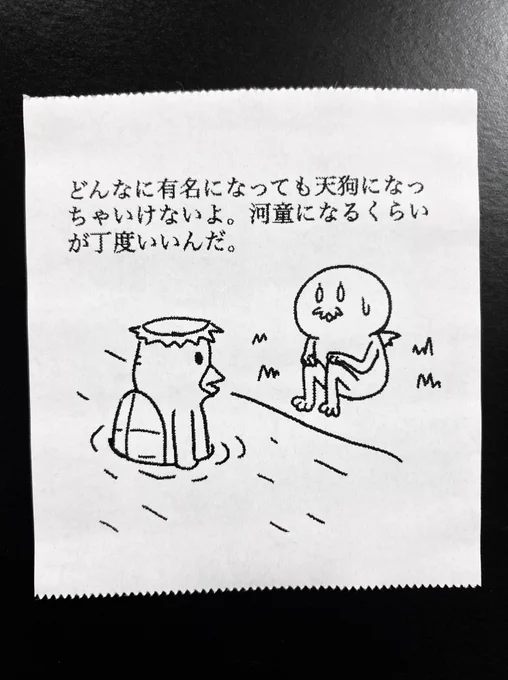 どんなに有名になっても天狗になっ
ちゃいけないよ。河童になるくらい
が丁度いいんだ。